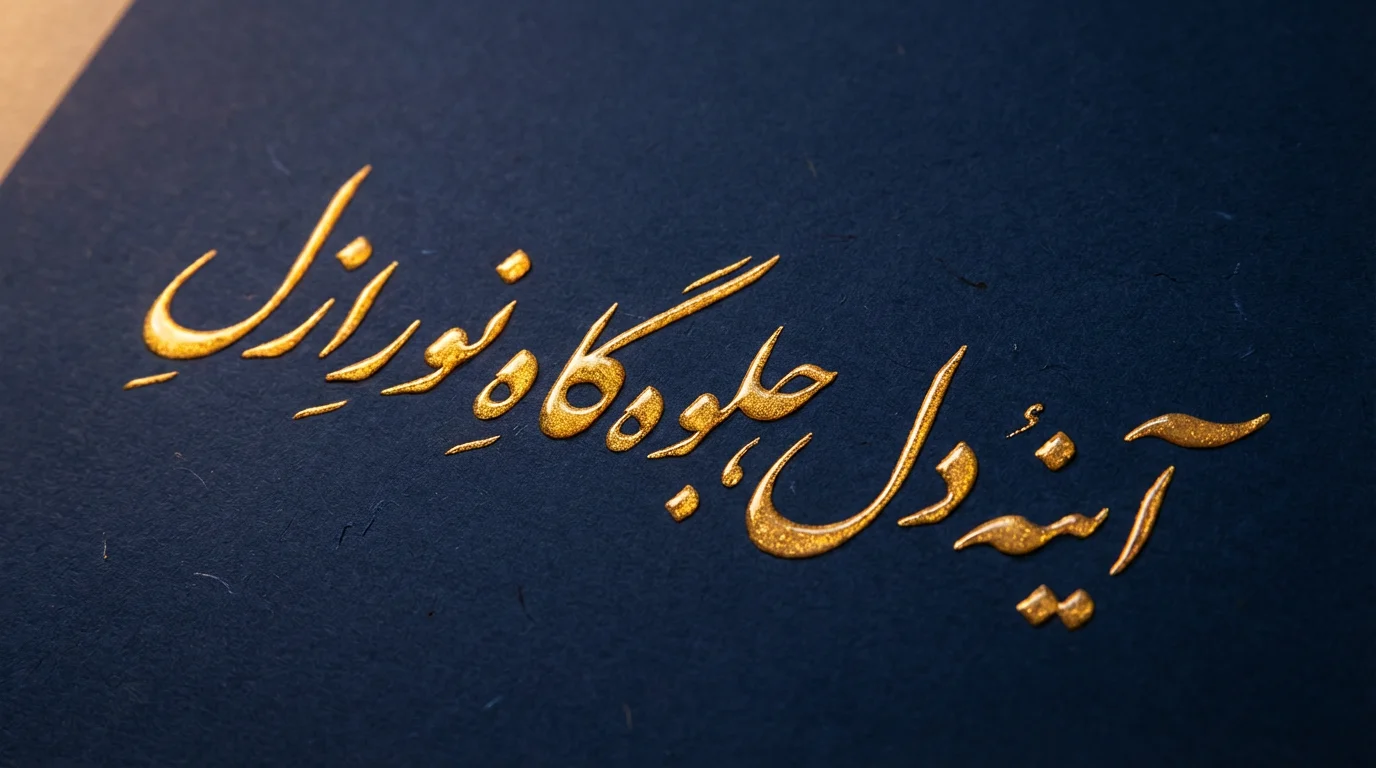 آینهٔ دل، جلوه‌گاهِ نورِ ازلِ